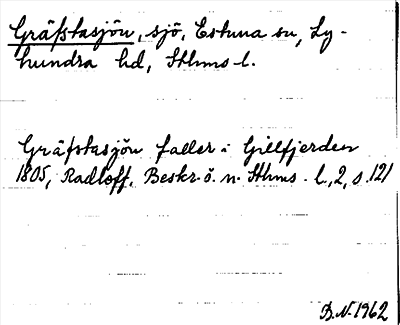 Gräfstasjön, sjö, Estuna sn, Ly-
hundra hd, Sthlms l.
Gräfstasjön faller i Gillfjerden
1805, Radloff. Beskr. ö. n. Sthlms l., 2, s. 121
B.N. 1962